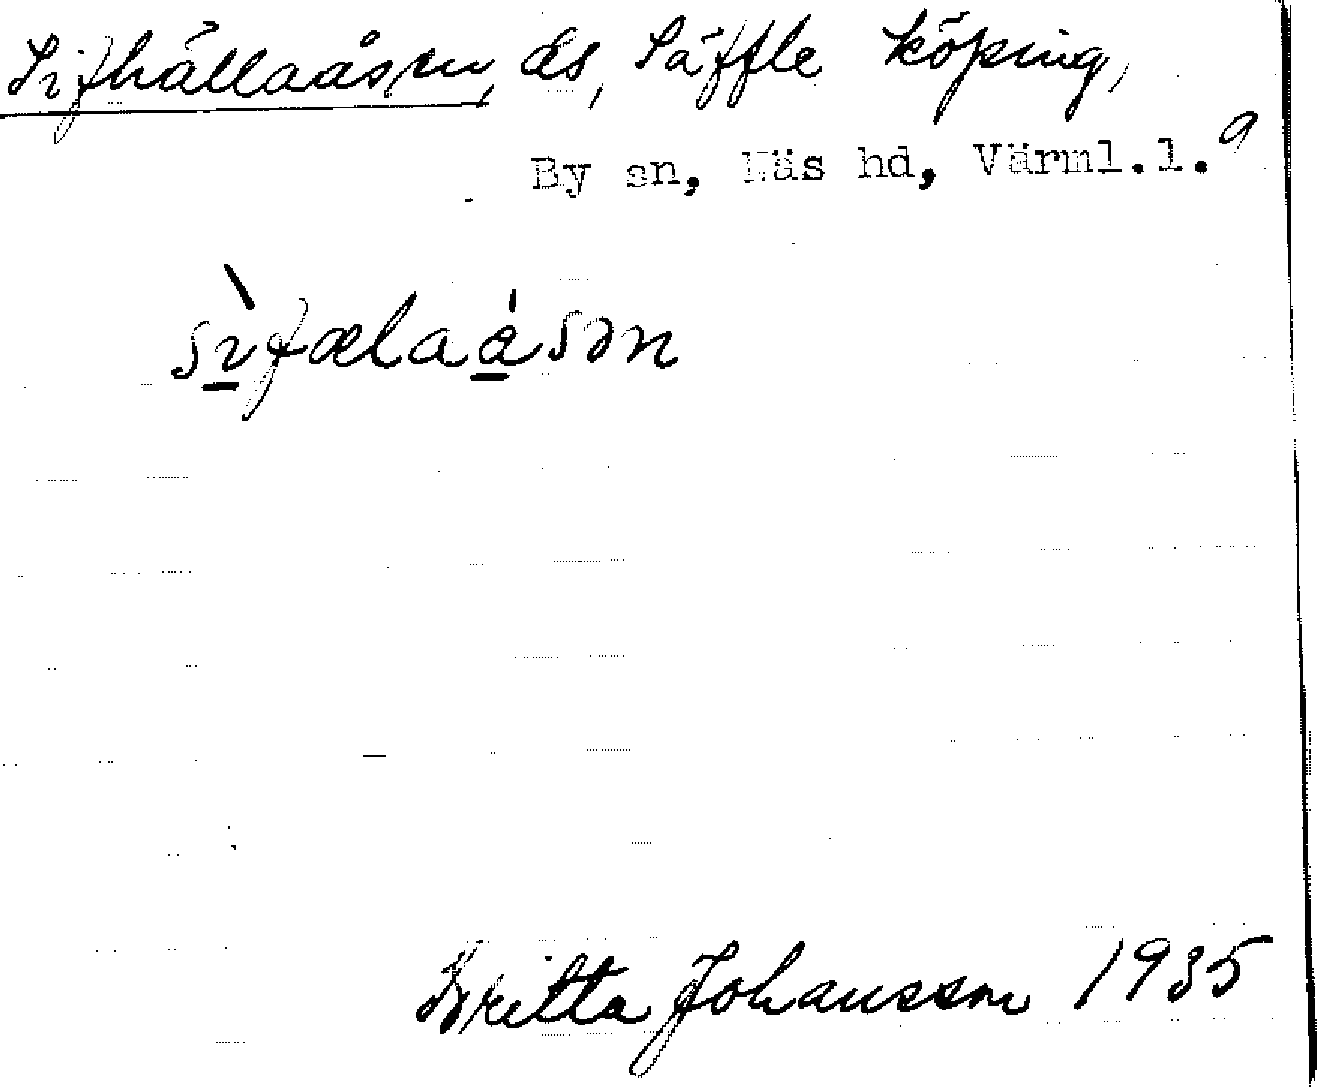 Sifhällaåsen, ås, Säffle köping,
By sn, Näs hd, Värml.l. a
sìfælaåsən
Britta Johansson 1935